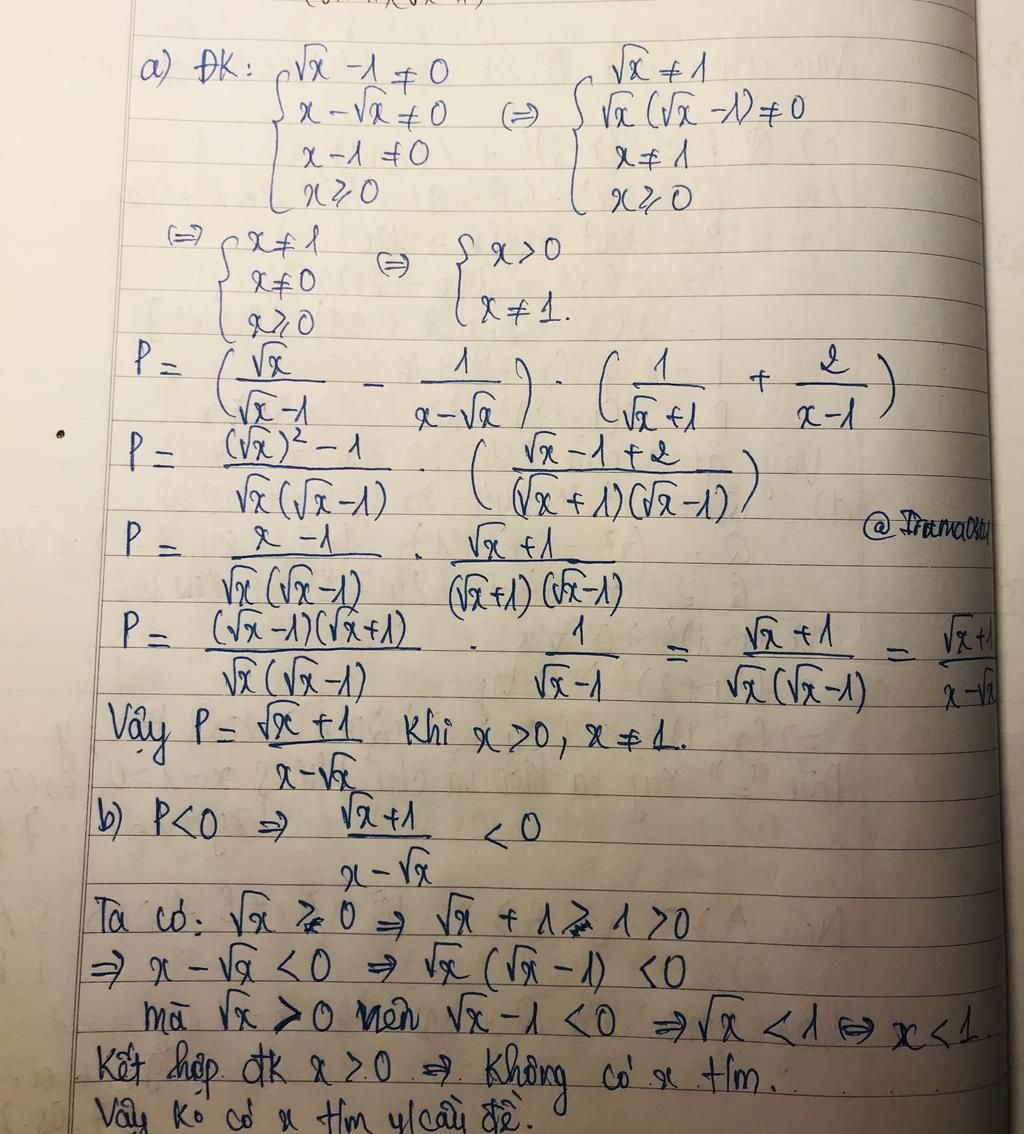 a) ĐK: { √x - 1 ≠ 0 ; x - √x ≠ 0 ; x - 1 ≠ 0 ; x ⩾ 0 (=) { √x ≠ 1 ; √x (√x - 1) ≠ 0 ; x ≠ 1 ; x ⩾ 0
(=) { x ≠ 1 ; x ≠ 0 ; x ⩾ 0 (=) { x > 0 ; x ≠ 1.
P = ( √x / (√x - 1) - 1 / (x - √x) ) · ( 1 / (√x + 1) + 2 / (x - 1) )
P = ((√x)² - 1) / (√x (√x - 1)) · ( (√x - 1 + 2) / ((√x + 1)(√x - 1)) )
P = (x - 1) / (√x (√x - 1)) · (√x + 1) / ((√x + 1)(√x - 1))
P = ((√x - 1)(√x + 1)) / (√x (√x - 1)) · 1 / (√x - 1) = (√x + 1) / (√x (√x - 1)) = (√x + 1) / (x - √x)
Vậy P = (√x + 1) / (x - √x) khi x > 0, x ≠ 1.
b) P < 0 ⇒ (√x + 1) / (x - √x) < 0
Ta có: √x ⩾ 0 ⇒ √x + 1 ⩾ 1 > 0
⇒ x - √x < 0 ⇒ √x (√x - 1) < 0
mà √x > 0 nên √x - 1 < 0 ⇒ √x < 1 ⇔ x < 1.
Kết hợp đk x > 0 ⇒ Không có x t/m.
Vậy ko có x t/m y/cầu đề.